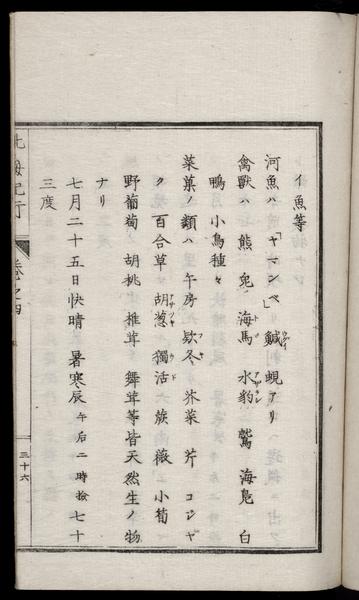 イ魚等
河魚ハ「ヤマンベ」鰔 蜆アリ
禽獸ハ 熊 兎 海馬 水豹 鷲 海鳧 白
鴨 小鳥種々
菜菓ノ類ハ 午房 欵冬 芥菜 芹 コジャ
ク 百合草 胡葱 獨活 蕨 薇 小筍
野葡萄 胡桃 椎茸 舞茸等皆天然生ノ物
ナリ
七月二十五日快晴 暑寒辰 午后二時撿 七十
三度
北海紀行 卷之四 三十六